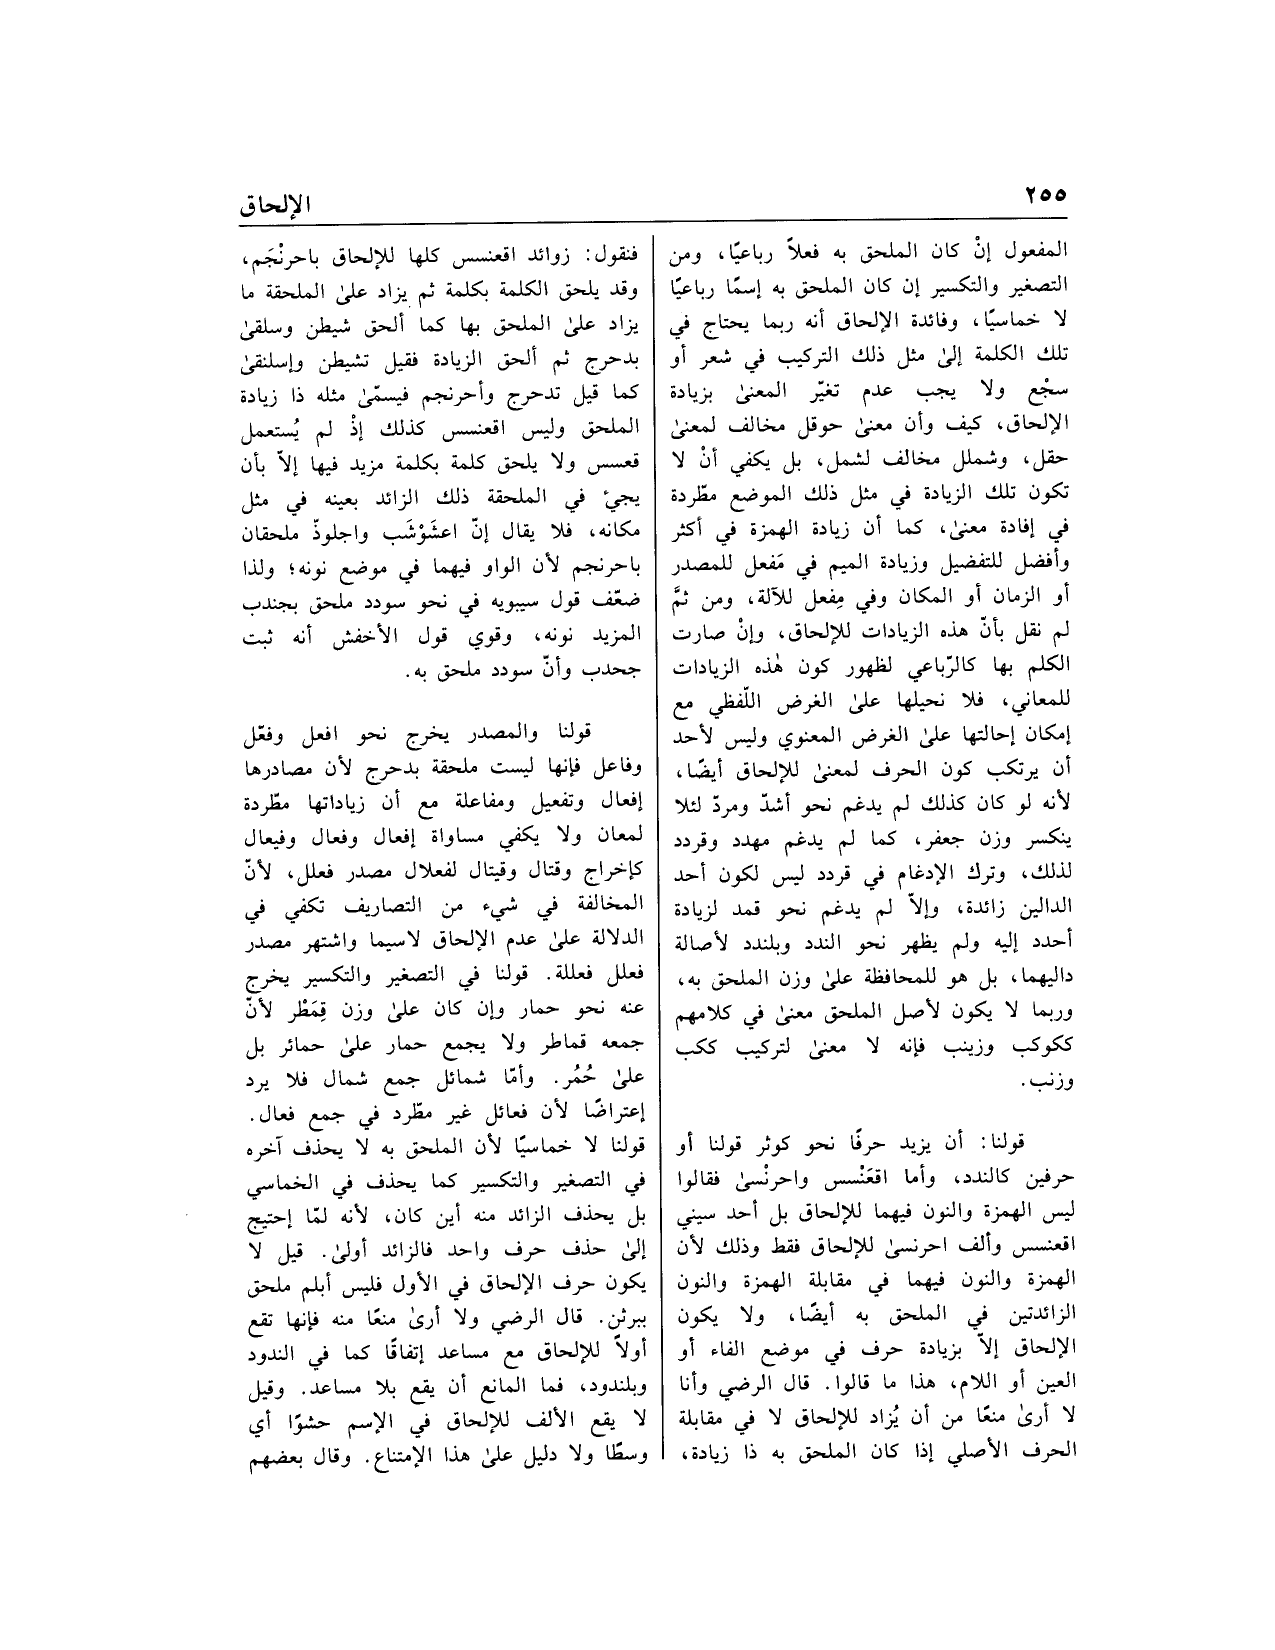 ٢٥٥
الإلحاق
المفعول إنْ كان الملحق به فعلاً رباعيًا، ومن
التصغير والتكسير إن كان الملحق به إسمًا رباعيًا
لا خماسيًا، وفائدة الإلحاق أنه ربما يحتاج في
تلك الكلمة إلىٰ مثل ذلك التركيب في شعر أو
سجْع ولا يجب عدم تغيّر المعنىٰ بزيادة
الإلحاق، كيف وأن معنىٰ حوقل مخالف لمعنىٰ
حقل، وشملل مخالف لشمل، بل يكفي أنْ لا
تكون تلك الزيادة في مثل ذلك الموضع مطّردة
في إفادة معنىٰ، كما أن زيادة الهمزة في أكثر
وأفضل للتفضيل وزيادة الميم في مَفعل للمصدر
أو الزمان أو المكان وفي مِفعل للآلة، ومن ثمَّ
لم نقل بأنّ هذه الزيادات للإلحاق، وإنْ صارت
الكلم بها كالرّباعي لظهور كون هٰذه الزيادات
للمعاني، فلا نحيلها علىٰ الغرض اللّفظي مع
إمكان إحالتها علىٰ الغرض المعنوي وليس لأحد
أن يرتكب كون الحرف لمعنىٰ للإلحاق أيضًا،
لأنه لو كان كذلك لم يدغم نحو أشدّ ومردّ لئلا
ينكسر وزن جعفر، كما لم يدغم مهدد وقردد
لذلك، وترك الإدغام في قردد ليس لكون أحد
الدالين زائدة، وإلاّ لم يدغم نحو قمد لزيادة
أحدد إليه ولم يظهر نحو الندد وبلندد لأصالة
داليهما، بل هو للمحافظة علىٰ وزن الملحق به،
وربما لا يكون لأصل الملحق معنىٰ في كلامهم
ككوكب وزينب فإنه لا معنىٰ لتركيب ككب
وزنب.
قولنا: أن يزيد حرفًا نحو كوثر قولنا أو
حرفين كالندد، وأما اقعَنْسس واحرنْسىٰ فقالوا
ليس الهمزة والنون فيهما للإلحاق بل أحد سيني
اقعنسس وألف احرنسىٰ للإلحاق فقط وذلك لأن
الهمزة والنون فيهما في مقابلة الهمزة والنون
الزائدتين في الملحق به أيضًا، ولا يكون
الإلحاق إلاّ بزيادة حرف في موضع الفاء أو
العين أو اللام، هذا ما قالوا. قال الرضي وأنا
لا أرىٰ منعًا من أن يُزاد للإلحاق لا في مقابلة
الحرف الأصلي إذا كان الملحق به ذا زيادة،
فنقول: زوائد اقعنسس كلها للإلحاق باحرنْجَم،
وقد يلحق الكلمة بكلمة ثم يزاد علىٰ الملحقة ما
يزاد علىٰ الملحق بها كما ألحق شيطن وسلقىٰ
بدحرج ثم ألحق الزيادة فقيل تشيطن وإسلنقىٰ
كما قيل تدحرج وأحرنجم فيسمّىٰ مثله ذا زيادة
الملحق وليس اقعنسس كذلك إذْ لم يُستعمل
قعسس ولا يلحق كلمة بكلمة مزيد فيها إلاّ بأن
يجيْ في الملحقة ذلك الزائد بعينه في مثل
مكانه، فلا يقال إنّ اعشَوْشَب واجلوذّ ملحقان
باحرنجم لأن الواو فيهما في موضع نونه؛ ولذا
ضعّف قول سيبويه في نحو سودد ملحق بجندب
المزيد نونه، وقوي قول الأخفش أنه ثبت
جحدب وأنّ سودد ملحق به.
قولنا والمصدر يخرج نحو افعل وفعّل
وفاعل فإنها ليست ملحقة بدحرج لأن مصادرها
إفعال وتفعيل ومفاعلة مع أن زياداتها مطّردة
لمعان ولا يكفي مساواة إفعال وفعال وفيعال
كإخراج وقتال وقيتال لفعلال مصدر فعلل، لأنّ
المخالفة في شيء من التصاريف تكفي في
الدلالة علىٰ عدم الإلحاق لاسيما واشتهر مصدر
فعلل فعللة. قولنا في التصغير والتكسير يخرج
عنه نحو حمار وإن كان علىٰ وزن قِمَطْر لأنّ
جمعه قماطر ولا يجمع حمار علىٰ حمائر بل
علىٰ حُمُر. وأمّا شمائل جمع شمال فلا يرد
إعتراضًا لأن فعائل غير مطّرد في جمع فعال.
قولنا لا خماسيًا لأن الملحق به لا يحذف آخره
في التصغير والتكسير كما يحذف في الخماسي
بل يحذف الزائد منه أين كان، لأنه لمّا إحتيج
إلىٰ حذف حرف واحد فالزائد أولىٰ. قيل لا
يكون حرف الإلحاق في الأول فليس أبلم ملحق
ببرثن. قال الرضي ولا أرىٰ منعًا منه فإنها تقع
أولاً للإلحاق مع مساعد إتفاقًا كما في الندود
وبلندود، فما المانع أن يقع بلا مساعد. وقيل
لا يقع الألف للإلحاق في الإسم حشوًا أي
وسطًا ولا دليل علىٰ هذا الإمتناع. وقال بعضهم